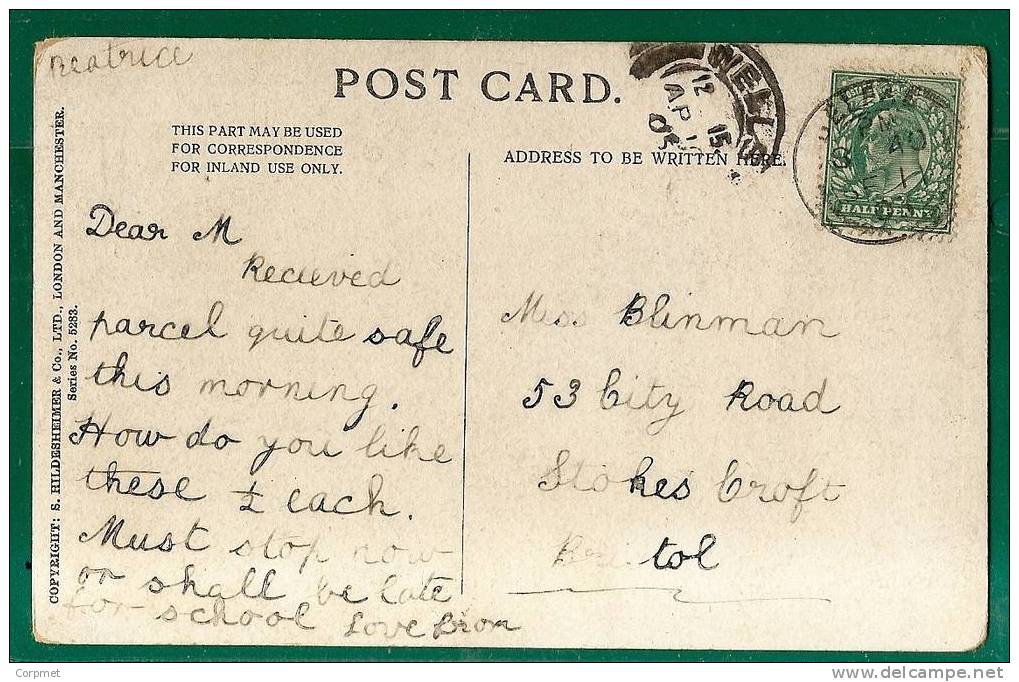 Beatrice
POST CARD.
THIS PART MAY BE USED
FOR CORRESPONDENCE
FOR INLAND USE ONLY.
ADDRESS TO BE WRITTEN HERE.
WELLS
12 15
AP
05
HALF PENNY
COPYRIGHT: S. HILDESHEIMER & Co., LTD., LONDON AND MANCHESTER.
Series No. 5283.
Dear M
Recieved
parcel quite safe
this morning.
How do you like
these ½ each.
Must stop now
or shall be late
for school Love from
Miss Blinman
53 City Road
Stokes Croft
Bristol
Corpmet
www.delcampe.net